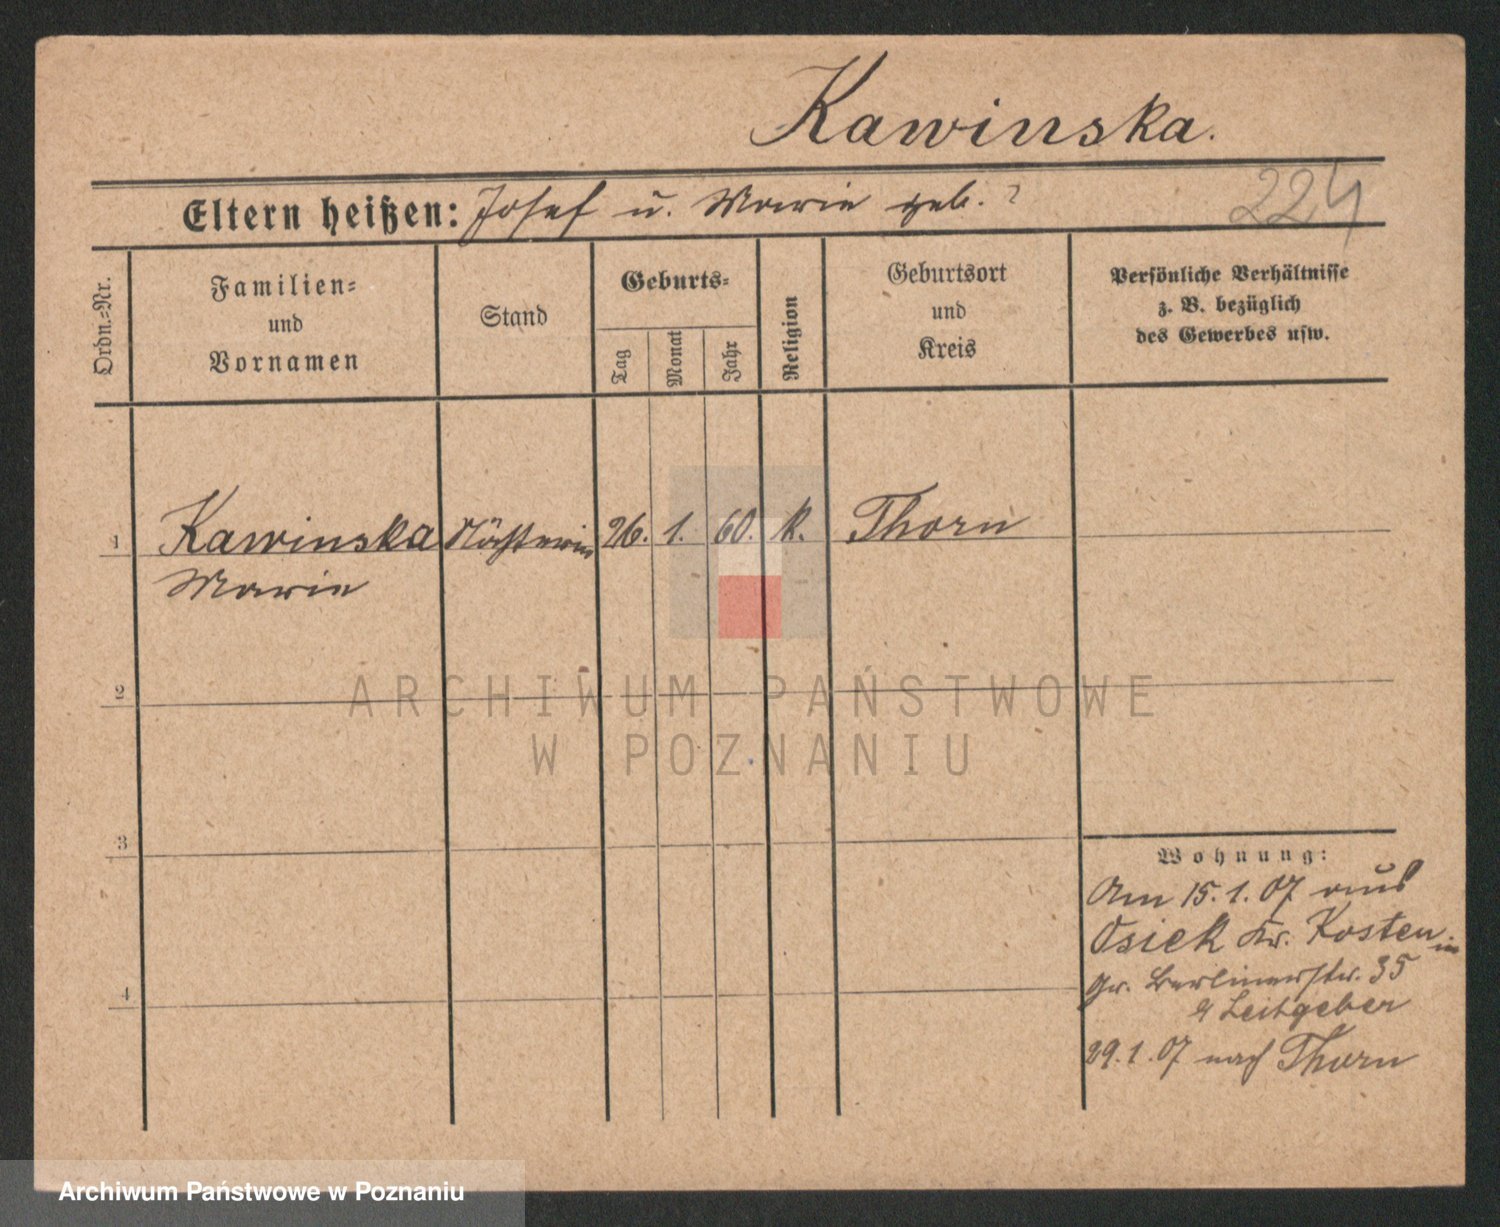 Kawinska.
Eltern heißen: Josef u. Marie geb. ?
224
Ordn.=Nr.
Familien=
und
Vornamen
Stand
Geburts=
Tag
Monat
Jahr
Religion
Geburtsort
und
Kreis
Persönliche Verhältnisse
z. B. bezüglich
des Gewerbes usw.
1 Kawinska 26. 1. 60. k. Thorn
Marie
2
3
4
Wohnung:
Am 15.1.07 aus
Osiek Kr. Kosten in
Gr. Berlinerstr. 35
Leitgeber
29.1.07 nach Thorn
ARCHIWUM PAŃSTWOWE
W POZNANIU
Archiwum Państwowe w Poznaniu